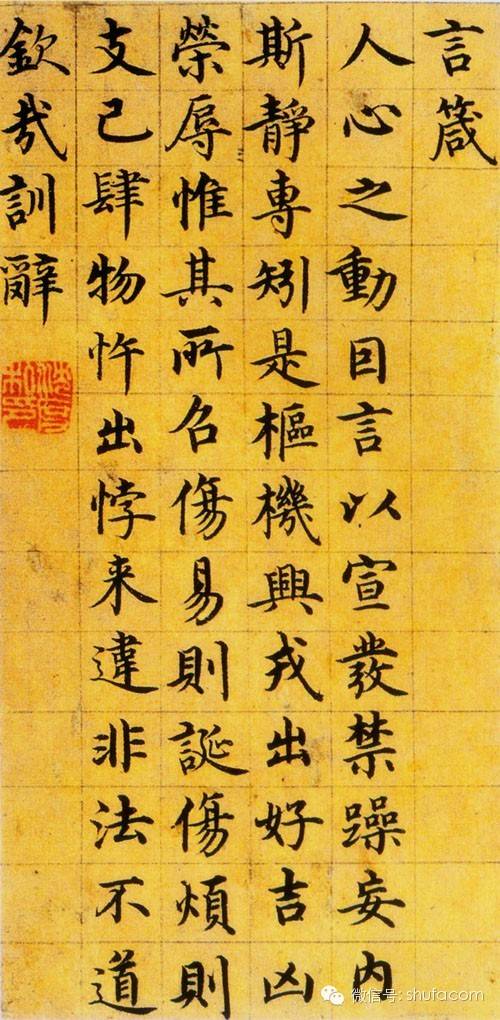 言箴
人心之動因言以宣發禁躁妄內
斯靜專矧是樞機興戎出好吉凶
榮辱惟其所召傷易則誕傷煩則
支己肆物忤出悖来違非法不道
欽哉訓辭
微信号: shufacom